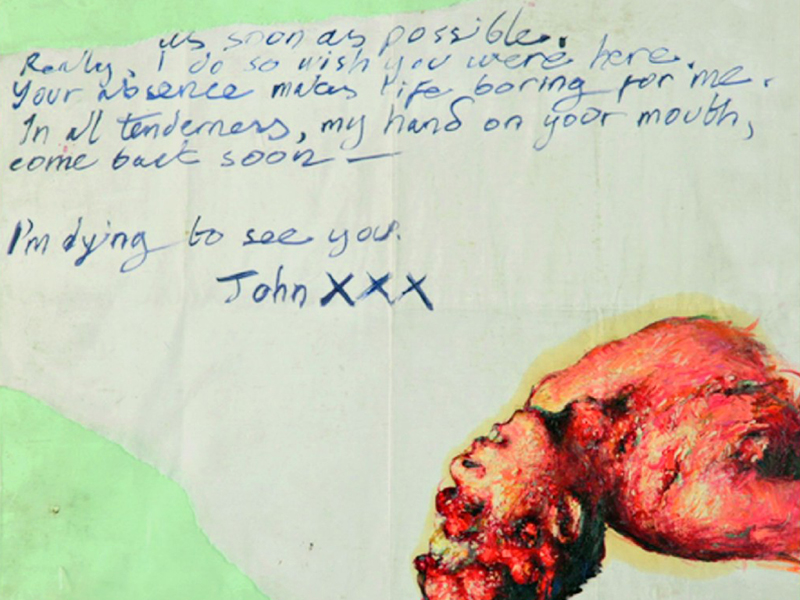 as soon as possible.
Really, I do so wish you were here.
Your absence makes life boring for me.
In all tenderness, my hand on your mouth,
come back soon —
I'm dying to see you.
John XXX